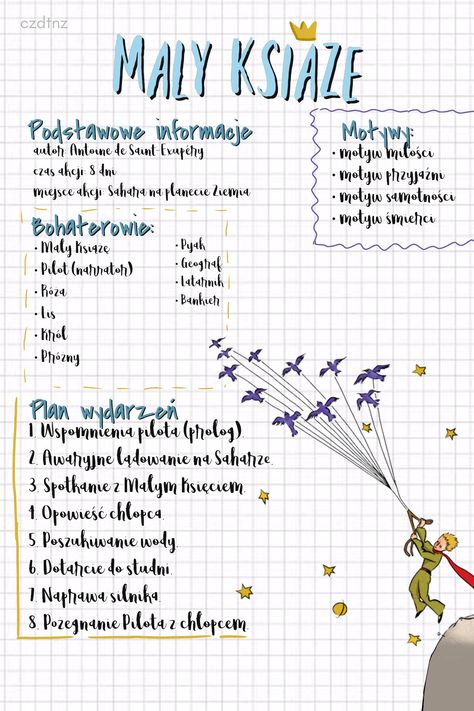 czdtnz
MAŁY KSIĄŻĘ
Podstawowe informacje
autor: Antoine de Saint-Exupéry
czas akcji: 8 dni
miejsce akcji: Sahara na planecie Ziemia
Motywy:
• motyw miłości
• motyw przyjaźni
• motyw samotności
• motyw śmierci
Bohaterowie:
• Mały Książę
• Pilot (narrator)
• Róża
• Lis
• Król
• Próżny
• Pijak
• Geograf
• Latarnik
• Bankier
Plan wydarzeń
1. Wspomnienia pilota (prolog).
2. Awaryjne lądowanie na Saharze.
3. Spotkanie z Małym Księciem.
4. Opowieść chłopca.
5. Poszukiwanie wody.
6. Dotarcie do studni.
7. Naprawa silnika.
8. Pożegnanie Pilota z chłopcem.